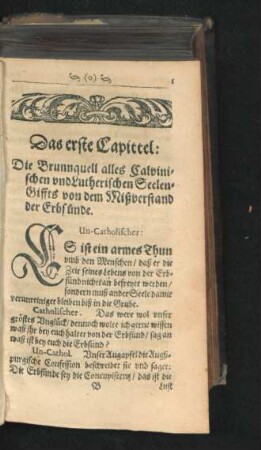 (0) 1
Das erste Capittel:
Die Brunnquell alles Calvini-
schen vnd Lutherischen Seelen-
Giffts von dem Mißverstand
der Erbsünde.
Un-Catholischer:
ES ist ein armes Thun
vmb den Menschen / daß er die
Zeit seines Lebens von der Erb-
sünd nicht kan befreyet werden /
sondern muß an der Seele damit
verunreiniget bleiben biß in die Grube.
Catholischer. Das were wol unser
gröstes Unglück / dennoch wolte ich gerne wissen
waß ihr bey euch haltet von der Erbsünd / sag an
waß ist bey euch die Erbsünd?
Un-Cathol. Unser Augapfel die Augs-
purgische Confession beschreibet sie und saget:
Die Erbsünde sey die Concupiscentz / das ist die
B Lust